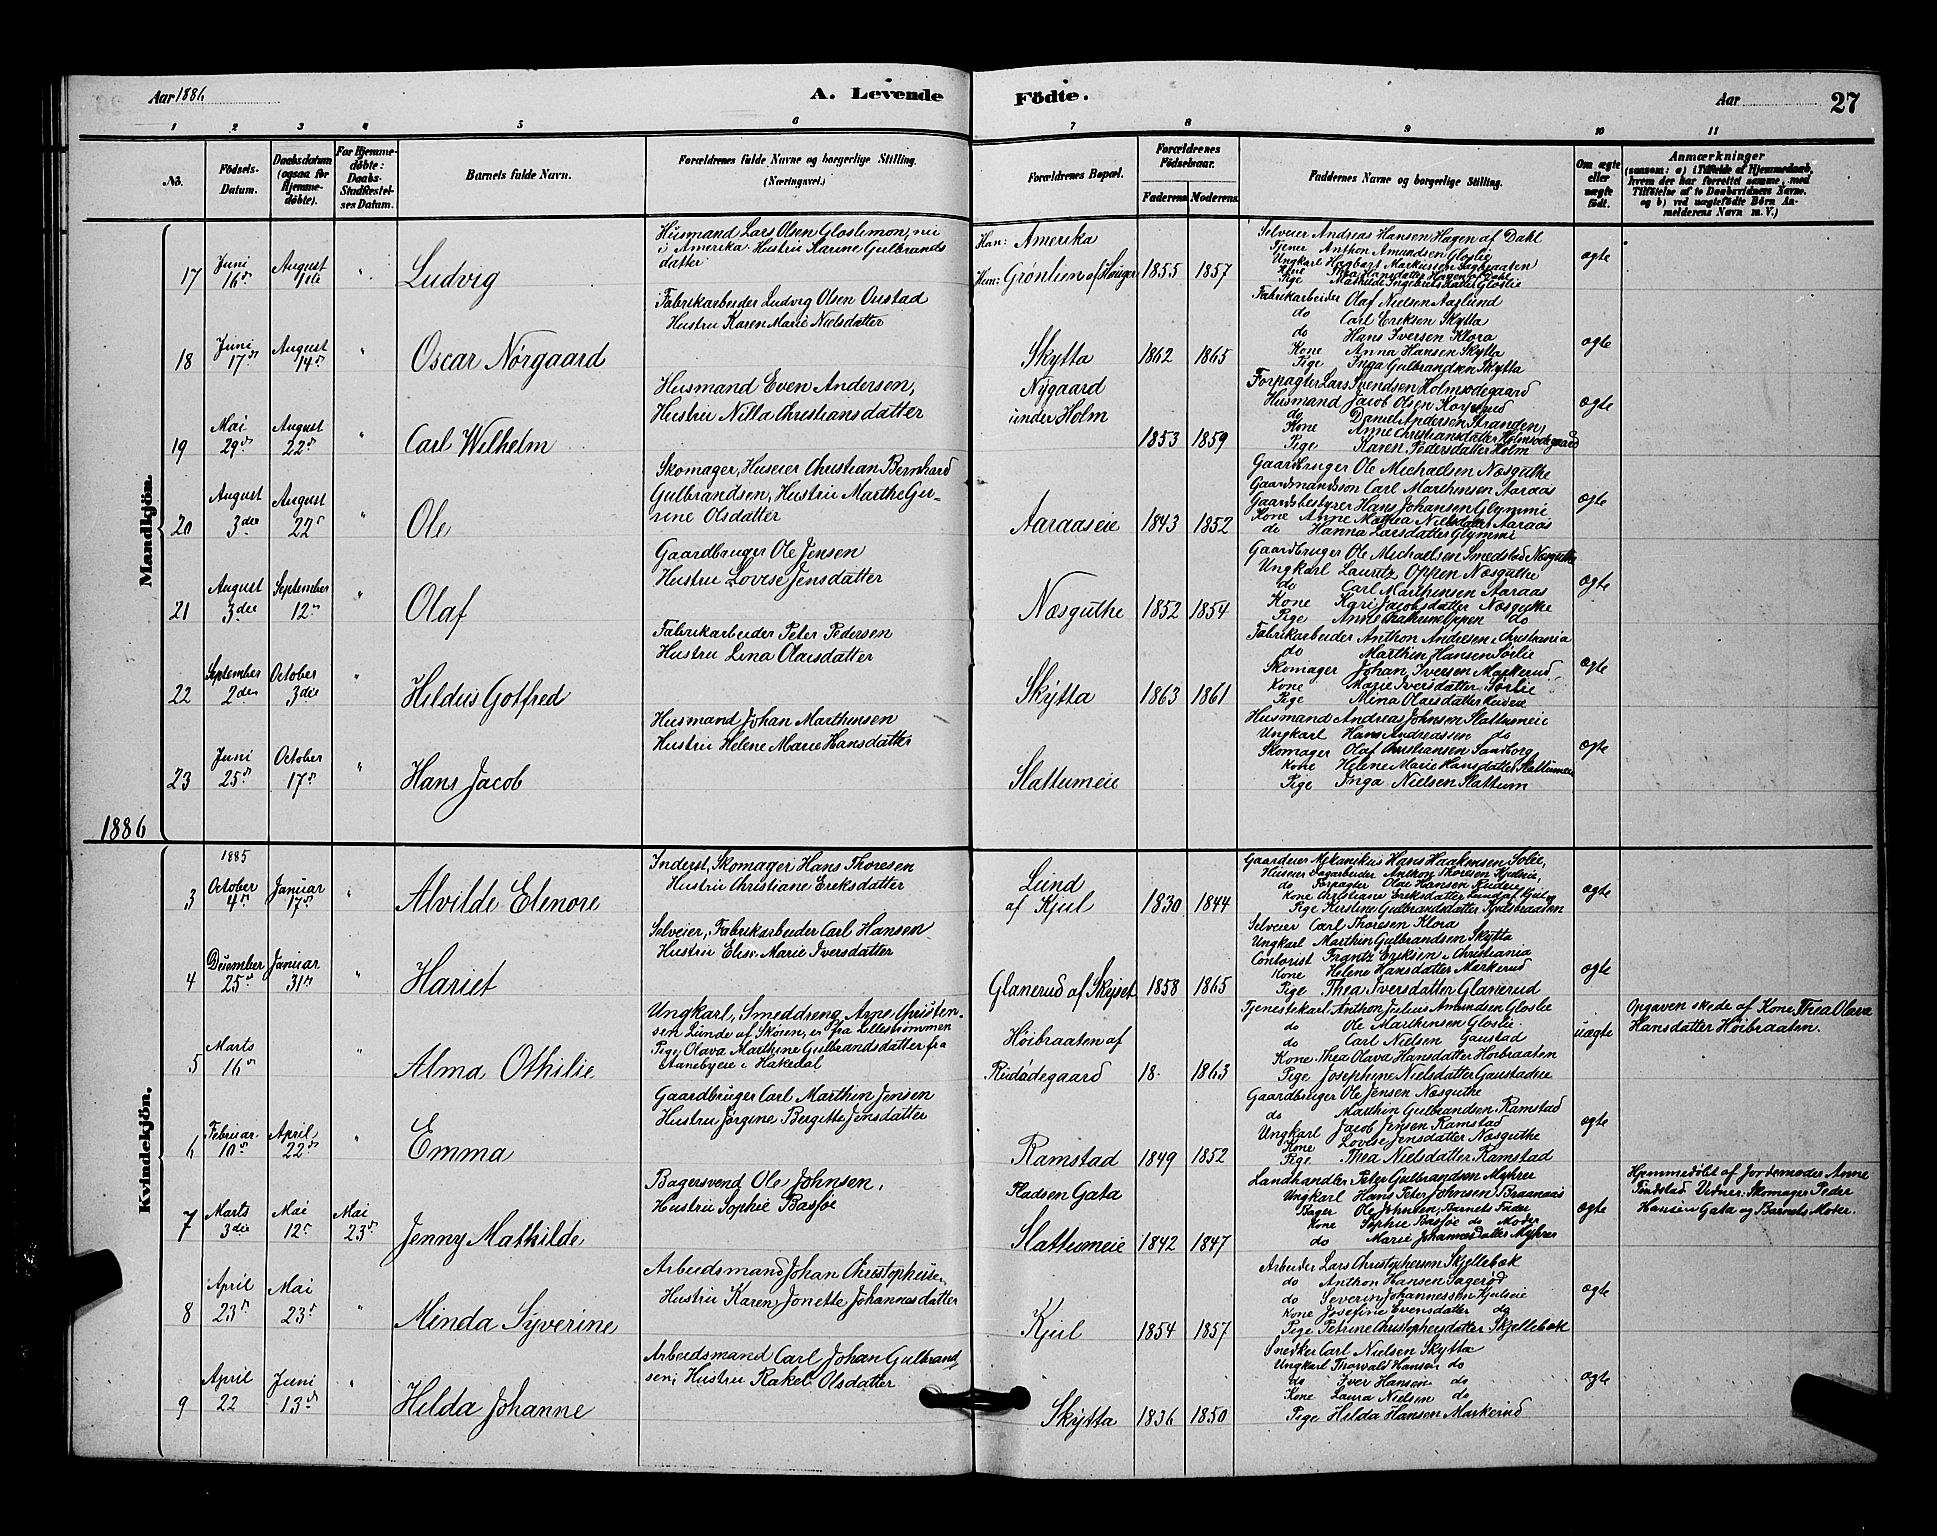 Aar 1886
A. Levende
Födte.
Aar
27
1 2 3 4 5 6 7 8 9 10 11
No.
Födsels-
Datum.
Daabsdatum
(ogsaa for
Hjemme-
døbte).
For Hjemme-
døbte:
Daabs-
Stadfæstel-
ses Datum.
Barnets fulde Navn.
Forældrenes fulde Navne og borgerlige Stilling.
(Næringsvei.)
Forældrenes Bopæl.
Forældrenes
Födselsaar.
Faderens Moderens
Faddernes Navne og borgerlige Stilling.
Om ægte
eller
uægte
födt.
Anmærkninger
(saasom: a) i Tilfælde af Hjemmedaab,
hvem der har forrettet samme, med
Tilføielse af to Daabsvidners Navne.
og b) ved uægtefödte Børn An-
melderens Navn m. V.)
Mandkjön.
17
Juni
16de
August
1ste
"
Ludvig
Husmand Lars Olsen Gloslimon, nu
i Amerika. Hustru Karine Gulbrands
datter
Han: Amerika
Hun: Grønlien af Hauger
1855 1857
Selveier Andreas Hansen Hagen af Dahl
Tjener Anthon Amundsen Gloslie
Ungkarl Hagbart Markussen Sagbraaten
Kone Thea Hansdatter Hagen af Dahl
Pige Mathilde Ingebretsdatter Gloslie
ægte
18
Juni
17de
August
14de
"
Oscar Nørgaard
Fabrikarbeider Ludvig Olsen Oustad
Hustru Karen Marie Nielsdatter
Skytta
1862 1865
Fabrikarbeider Olaf Nielsen Aaslund
do Carl Eriksen Skytta
do Hans Iversen Klora
Kone Anna Hansen Skytta
Pige Inga Gulbrandsen Skytta
ægte
19
Mai
29de
August
22de
"
Carl Wilhelm
Husmand Even Andersen,
Hustru Nilla Christiansdatter
Nygaard
under Holm
1853 1859
Forpagter Lars Svendsen Holmsødegaard
Husmand Jacob Olsen Korperud
do Daniel Andersen Stranden,
Kone Anne Christiansdatter Holmsødegaard
Pige Karen Pedersdatter Holm
ægte
20
August
3die
August
22de
"
Ole
Skomager, Huseier Christian Bernhard
Gulbrandsen, Hustru Marthe Ger-
rine Olsdatter
Aaraaseie
1843 1852
Gaardbruger Ole Michaelsen Næsguthe
Gaardmandssøn Carl Marthinsen Aaraas
Gaardsbestyrer Hans Johansen Glymmi
Kone Anne Mathea Nielsdatter Aaraas
do Hanna Larsdatter Glymmi
ægte
21
August
3die
September
12te
"
Olaf
Gaardbruger Ole Jensen
Hustru Lovise Jensdatter
Næsguthe
1852 1854
Gaardbruger Ole Michaelsen Smedstad Næsguthe
Ungkarl Lauritz Oppen Næsguthe
do Carl Marthinsen Aaraas
Kone Kari Jacobsdatter Næsguthe
Pige Anne Oppen do
ægte
22
September
2den
October
3die
"
Hildus Gotfred
Fabrikarbeider Peter Pedersen
Hustru Lina Olausdatter
Skytta
1863 1861
Fabrikarbeider Anthon Andersen Christiania
do Marthin Hansen Sørlie
Skomager Johan Iversen Markerud,
Kone Marie Iversdatter Sørlie
Pige Mina Olausdatter
ægte
23
Juni
25de
October
17de
"
Hans Jacob
Husmand Johan Marthinsen
Hustru Helene Marie Hansdatter
Slattumeie
Husmand Andreas Johnsen Slattumeie
Ungkarl Hans Andreassen do
Skomager Olaf Christiansen Sandborg
Kone Helene Marie Hansdatter Slattumeie
Pige Inga Nielsen Slattum
ægte
1886
Kvindekjön.
3
1885
October
4de
Januar
17de
"
Alvilde Elenore
Inderst, Skomager Hans Thoresen
Hustru Christiane Eriksdatter
Lund
af Kjul
1830 1844
Gaardeier Mekanikus Hans Haakensen Solie,
Huseier Dagarbeider Anthon Thoresen Kjulseie,
do Forpagter Olai Hansen Rudeie
Kone Christiane Eriksdatter Lund af Kjul
Pige Kirstine Gulbrandsdatter Kjulsbraaten
ægte
4
December
25de
Januar
31te
"
Hariet
Selveier, Fabrikarbeider Carl Hansen
Hustru Elise Marie Iversdatter
Glanerud af Skyset
1858 1865
Selveier Carl Thoresen Klora
Ungkarl Marthin Gulbrandsen Skytta
Contorist Frantz Eriksen i Christiania
Kone Helene Hansdatter Markerud
Pige Thea Iversdatter Glanerud
ægte
5
Marts
16de
"
Alma Othilie
Ungkarl, Smeddreng Arne Christen-
sen Lunde af Skøien, er fra Lillestrømmen
Pige Olava Marthine Gulbrandsdatter fra
Stanebyeie i Hakedal
Høibraaten af
Rudødegaard
18. 1863
Tjenestekarl Anthon Julius Amundsen Gloslie
do Ole Marthinsen Gloslie
do Carl Nielsen Gaustad
Kone Thea Olava Hansdatter Høibraaten
Pige Josephine Nielsdatter Gaustadeie
uægte
Opgaven skede af Kone Thea Olava
Hansdatter Høibraaten.
6
Februar
10de
April
22de
"
Emma
Gaardbruger Carl Marthin Jensen
Hustru Jørgine Bergitte Jensdatter
Ramstad
1849 1852
Gaardbruger Ole Jensen Næsguthe
do Marthin Gulbrandsen Ramstad
Ungkarl Jacob Jensen Ramstad
Kone Lovise Jensdatter Næsguthe
Pige Thea Nielsdatter Ramstad
ægte
7
Marts
3die
Mai
12te
Mai
23de
Jenny Mathilde
Bagersvend Ole Johnsen,
Hustru Sophie Basjøe
Pladsen Gata
Slattumeie
1842 1847
Landhandler Peter Gulbrandsen Myhrer
Ungkarl Hans Peter Johnsen Braanaas
Bager Ole Johnsen, Barnets Fader
Kone Sophie Basjøe do Moder
do Marie Johannesdatter Myhrer
ægte
Hjemmedøbt af Jordemoder Anne
Tindstad. Vidner: Skomager Peder
Hansen Gata og Barnets Moder.
8
April
23de
Mai
23de
"
Minda Syverine
Arbeidsmand Johan Christophersen,
Hustru Karen Jonette Johannesdatter
Kjul
1854 1857
Arbeider Lars Christophersen Skjellebæk
do Anthon Hansen Sagerød
do Severin Johannessen Kjulseie
Kone Josefine Evensdatter do
Pige Petrine Christophersdatter Skjellebæk
ægte
9
April
22
Juni
13de
"
Hilda Johanne
Arbeidsmand Carl Johan Gulbrand-
sen, Hustru Rakel Olsdatter
Skytta
1836 1850
Snedker Carl Nielsen Skytta
Ungkarl Thorvald Hansen do
do Iver Hansen do
Kone Laura Nielsen do
Pige Hilda Hansen Markerud
ægte